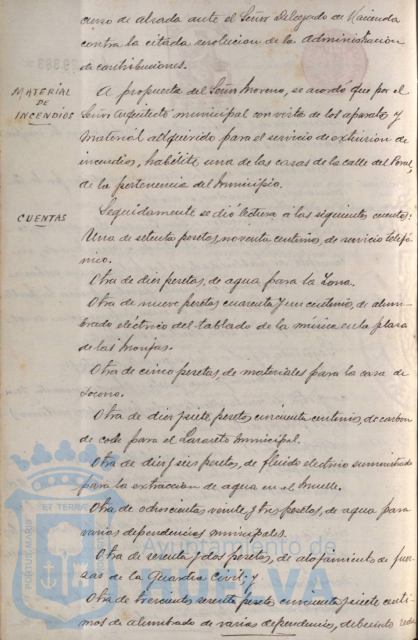 curso de alzada ante el Señor Delegado de Hacienda
contra la citada resolucion de la Administracion
de contribuciones.
MATERIAL
DE
INCENDIOS
A propuesta del Señor Moreno, se acordó que por el
Señor Arquitecto municipal con vista de los aparatos y
material adquirido para el servicio de extincion de
incendios, habilite una de las casas de la calle del
de la pertenencia del Municipio.
CUENTAS
Seguidamente se dió lectura á las siguientes cuentas:
Una de setenta pesetas, noventa centimos, de servicio telefó-
nico.
Otra de diez pesetas, de agua para la Zona.
Otra de nueve pesetas cuarenta y un centimos, de alum-
brado eléctrico del tablado de la música en la plaza
de las Monjas.
Otra de cinco pesetas, de materiales para la casa de
Socorro.
Otra de diez y siete pesetas cincuenta centimos, de carbon
de cok para el Lazareto Municipal.
Otra de diez y seis pesetas, de fluido electrico suministrado
para la extraccion de agua en el Muelle.
Otra de ochocientas veinte y tres pesetas, de agua para
varias dependencias municipales.
Otra de sesenta y dos pesetas, de alojamiento de fuer-
zas de la Guardia Civil; y
Otra de trescientas sesenta pesetas cincuenta y siete centi-
mos de alumbrado de varias dependencias,
PORTUS MARIS
ET TERRAE
Ayuntamiento de
HUELVA